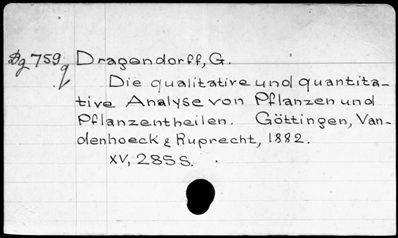 Dg 759 Dragendorff, G.
q Die qualitative und quantita-
tive Analyse von Pflanzen und
Pflanzentheilen. Göttingen, Van-
denhoeck & Ruprecht, 1882.
XV, 285 S.